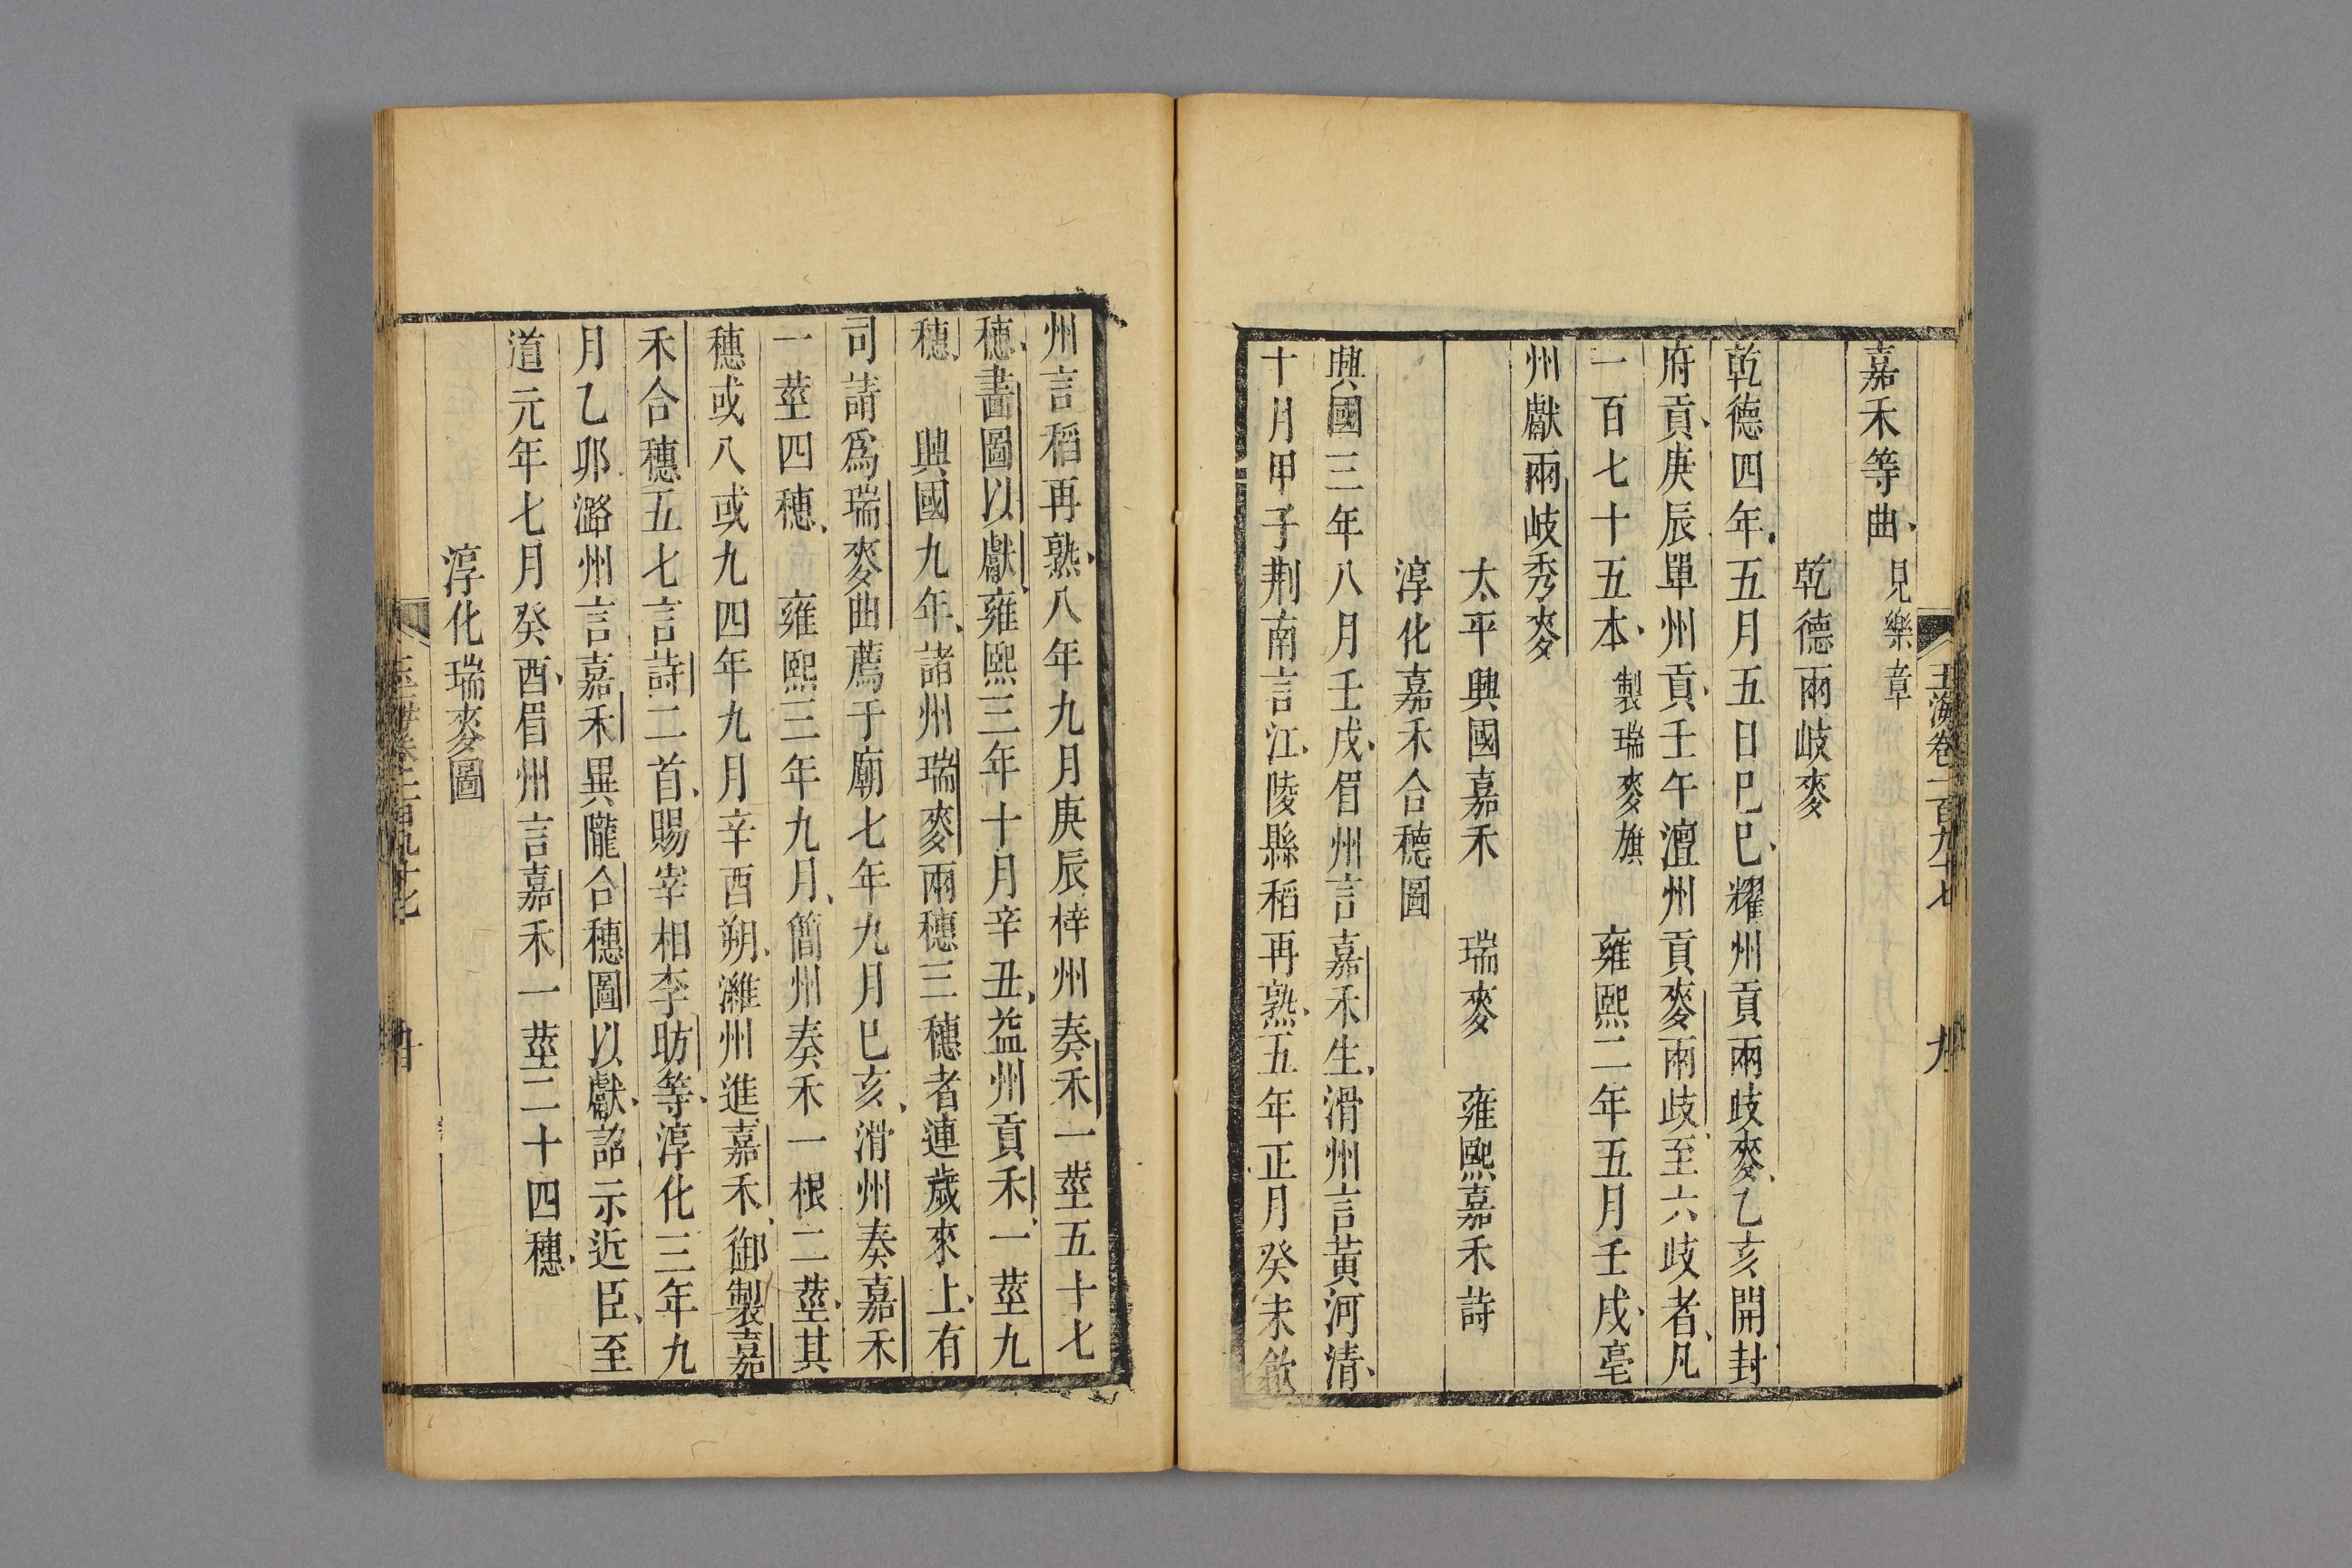 玉海卷一百九十七
九
嘉禾等曲見樂章
乾德兩岐麥
乾德四年五月五日巳巳耀州貢兩歧麥乙亥開封
府貢庚辰單州貢壬午澶州貢麥兩歧至六歧者凡
一百七十五本製瑞麥旗 雍熙二年五月壬戌亳
州獻兩岐秀麥
太平興國嘉禾 瑞麥 雍熙嘉禾詩
淳化嘉禾合穗圖
興國三年八月壬戌眉州言嘉禾生滑州言黃河清
十月甲子荆南言江陵縣稻再熟五年正月癸未歙
州言稻再熟八年九月庚辰梓州奏禾一莖五十七
穗畵圖以獻雍熙三年十月辛丑益州貢禾一莖九
穗 興國九年諸州瑞麥兩穗三穗者連歲來上有
司請爲瑞麥曲薦于廟七年九月巳亥滑州奏嘉禾
一莖四穗 雍熙三年九月簡州奏禾一根二莖其
穗或八或九四年九月辛酉朔濰州進嘉禾御製嘉
禾合穗五七言詩二首賜宰相李昉等淳化三年九
月乙卯潞州言嘉禾異隴合穗圖以獻詔示近臣至
道元年七月癸酉眉州言嘉禾一莖二十四穗
淳化瑞麥圖